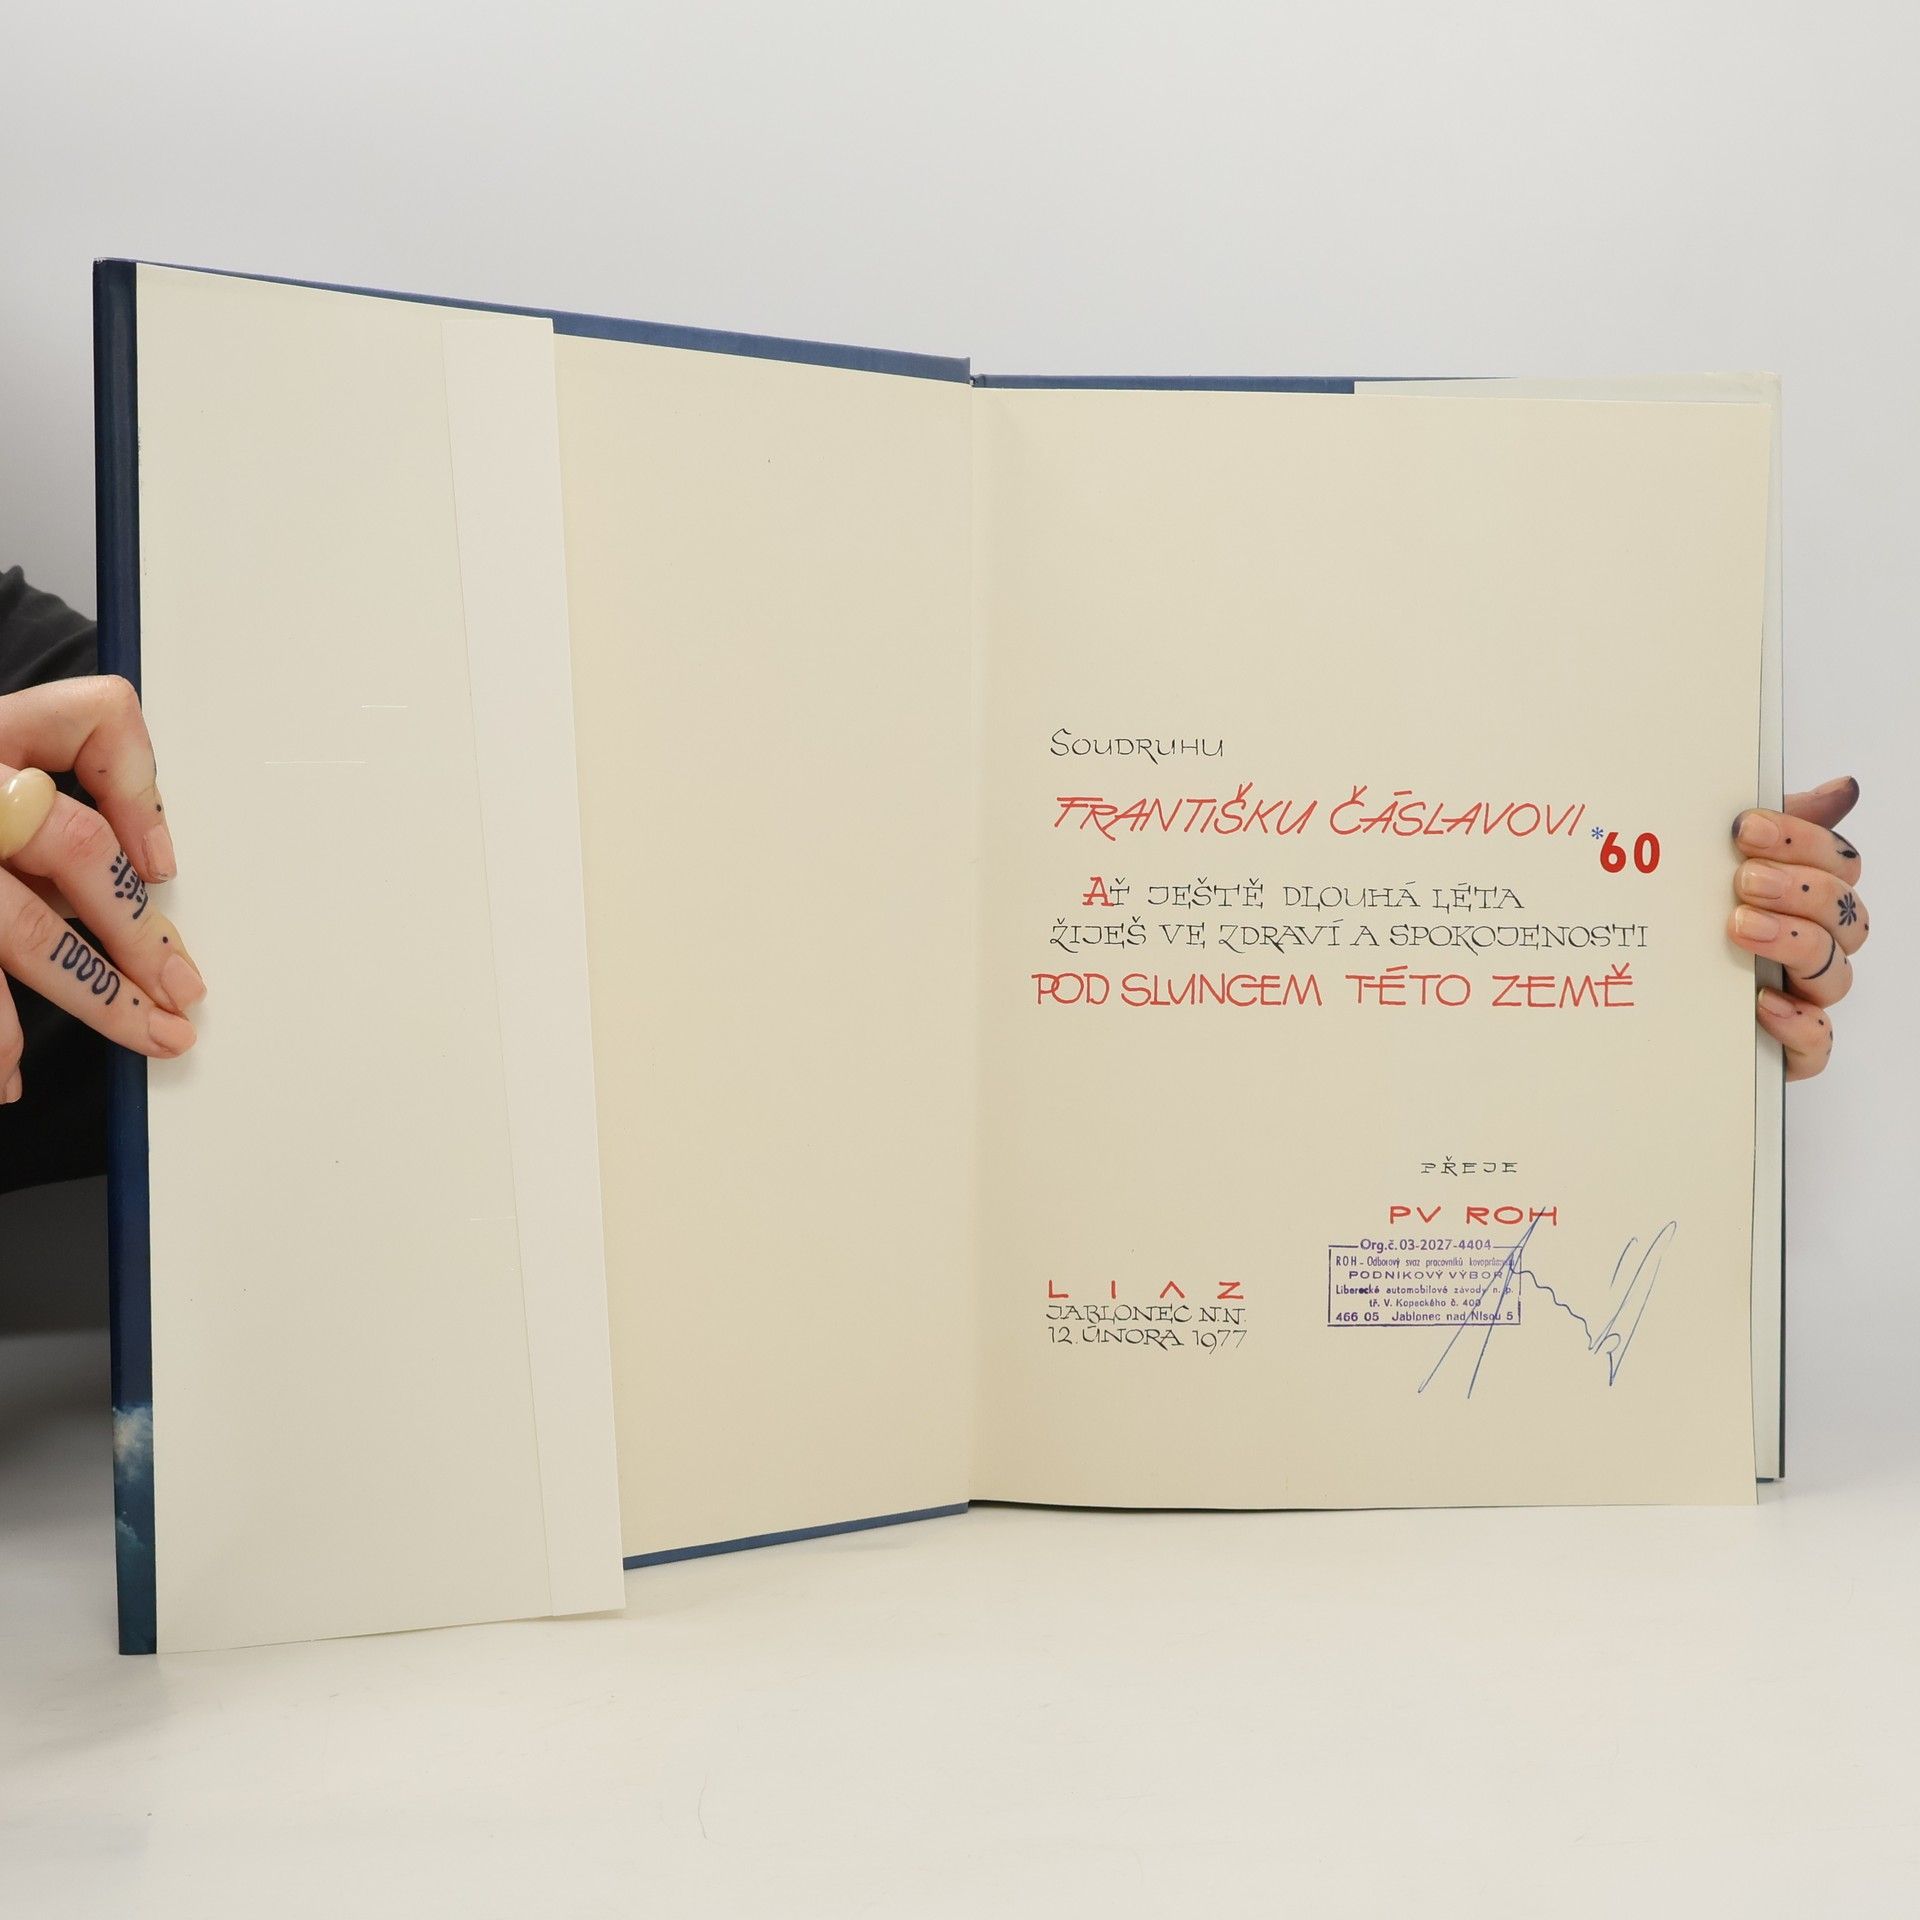 SOUDRUHU
FRANTIŠKU ČÁSLAVOVI
*60
AŤ JEŠTĚ DLOUHÁ LÉTA
ŽIJEŠ VE ZDRAVÍ A SPOKOJENOSTI
POD SLUNCEM TÉTO ZEMĚ
PŘEJE
PV ROH
Org.č. 03-2027-4404
ROH - Odborový svaz pracovníků
PODNIKOVÝ VÝBOR
Liberecké automobilové závody n. p.
tř. V. Kopeckého č. 400
466 05 Jablonec nad Nisou 5
LIAZ
JABLONEC N.N.
12. ÚNORA 1977